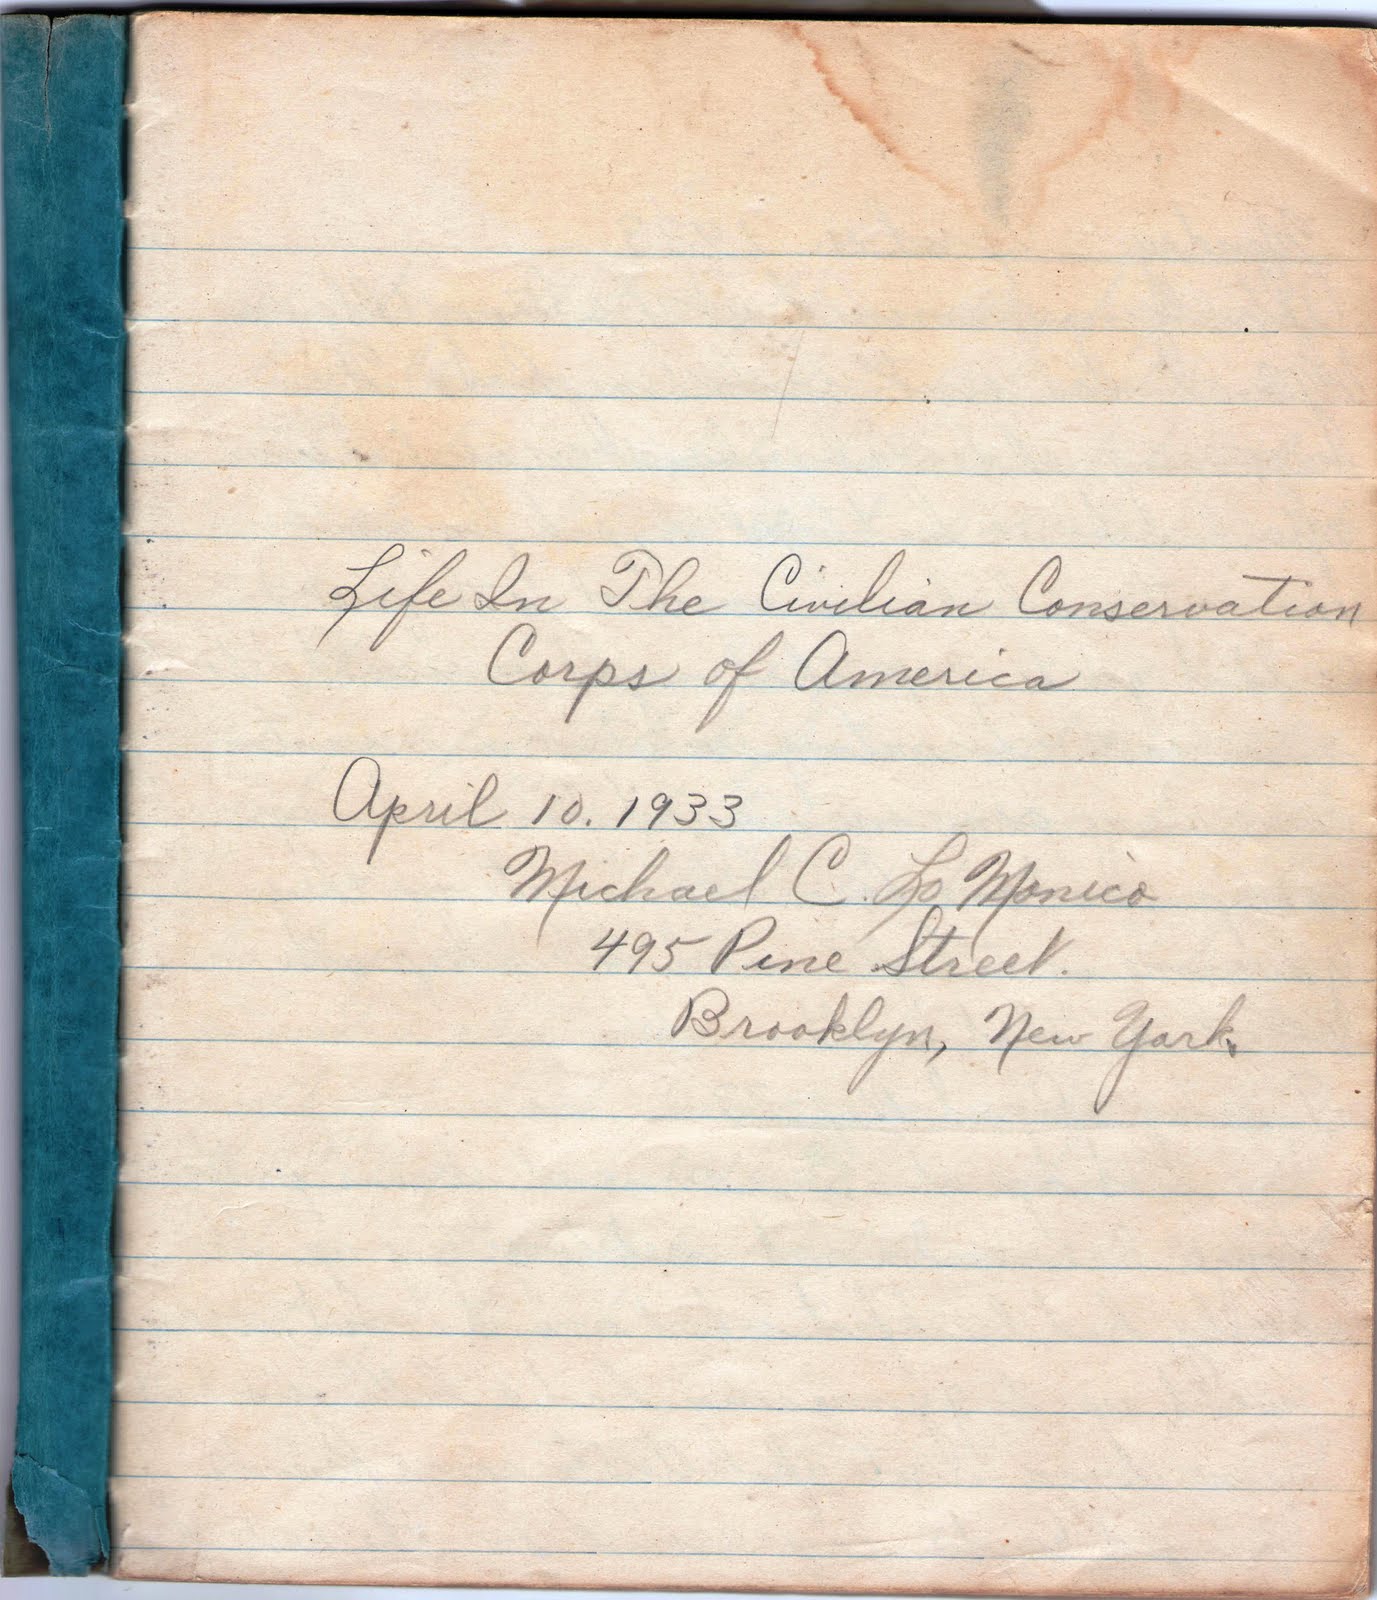 Life In The Civilian Conservation
Corps of America
April 10. 1933
Michael C. Lo Monico
495 Pine Street.
Brooklyn, New York.